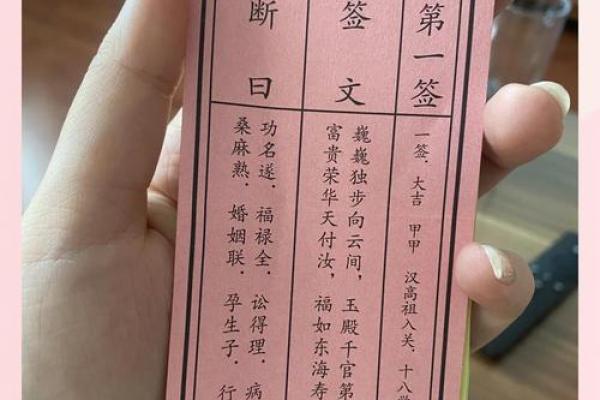 第一签
一签．大吉 甲甲 汉高祖入关．十八学
签文
巍巍独步向云间，玉殿千官第
富贵荣华天付汝，福如东海寿
断曰
功名遂．福禄全．讼得理．病
桑麻熟．婚姻联．孕生子．行